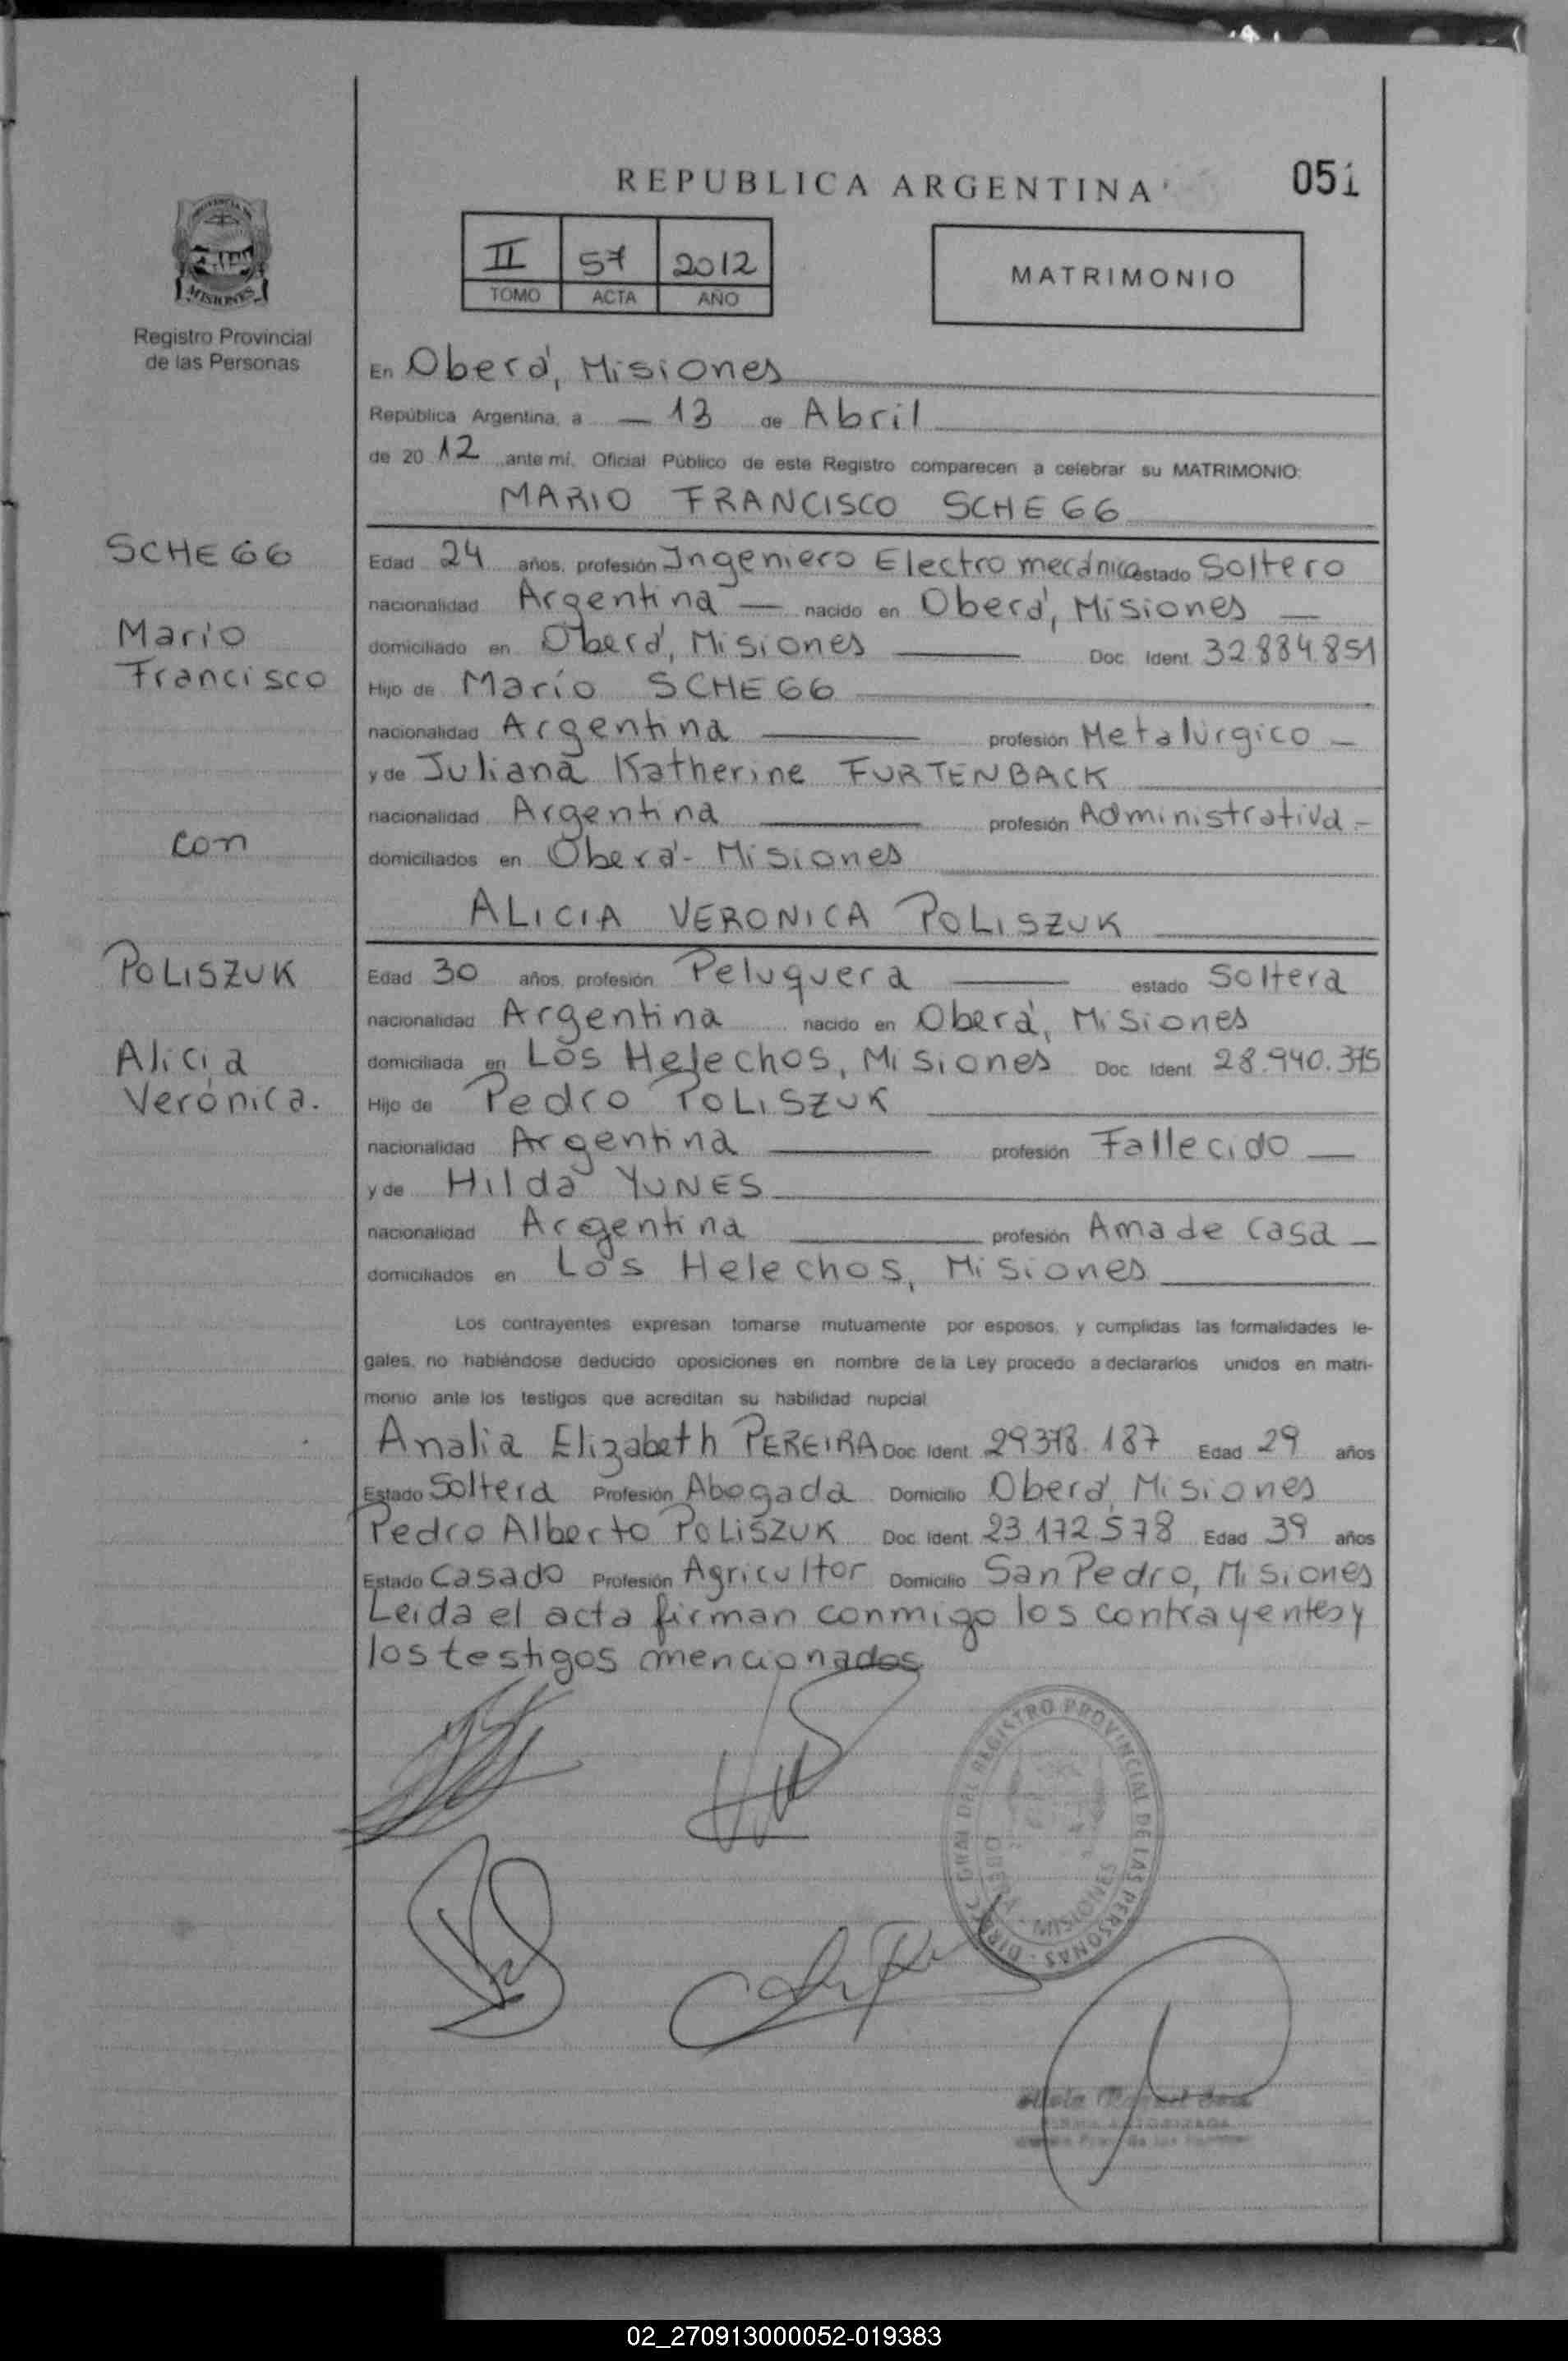 REPUBLICA ARGENTINA
051
II 57 2012
TOMO ACTA AÑO
MATRIMONIO
MISIONES
Registro Provincial
de las Personas
En Oberá, Misiones
República Argentina, a — 13 de Abril
de 20 12 ante mí, Oficial Público de este Registro comparecen a celebrar su MATRIMONIO:
MARIO FRANCISCO SCHEGG
SCHEGG
Mario
Francisco
con
POLISZUK
Alicia
Verónica.
Edad 24 años, profesión Ingeniero Electromecánico estado Soltero
nacionalidad Argentina — nacido en Oberá, Misiones —
domiciliado en Oberá, Misiones — Doc. Ident. 32.884.851
Hijo de Mario SCHEGG
nacionalidad Argentina — profesión Metalúrgico —
y de Juliana Katherine FURTENBACK
nacionalidad Argentina — profesión Administrativa -
domiciliados en Oberá - Misiones
ALICIA VERONICA POLISZUK
Edad 30 años, profesión Peluquera — estado Soltera
nacionalidad Argentina nacido en Oberá, Misiones
domiciliada en Los Helechos, Misiones Doc. Ident. 28.940.375
Hijo de Pedro POLISZUK
nacionalidad Argentina — profesión Fallecido —
y de Hilda YUNES
nacionalidad Argentina — profesión Ama de casa —
domiciliados en Los Helechos, Misiones
Los contrayentes expresan tomarse mutuamente por esposos, y cumplidas las formalidades le-
gales, no habiéndose deducido oposiciones en nombre de la Ley procedo a declararlos unidos en matri-
monio ante los testigos que acreditan su habilidad nupcial
Analia Elizabeth PEREIRA Doc. Ident. 29.378.187 Edad 29 años
Estado Soltera Profesión Abogada Domicilio Oberá, Misiones
Pedro Alberto POLISZUK Doc. Ident. 23.172.578 Edad 39 años
Estado Casado Profesión Agricultor Domicilio San Pedro, Misiones
Leida el acta firman conmigo los contrayentes y
los testigos mencionados
REGISTRO PROVINCIAL DE LAS PERSONAS
MISIONES
02_270913000052-019383